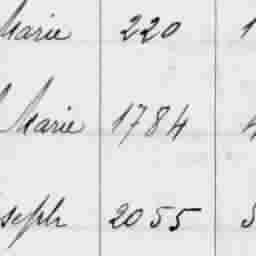 Marie 220 1
Marie 1784 4
seph 2055 5